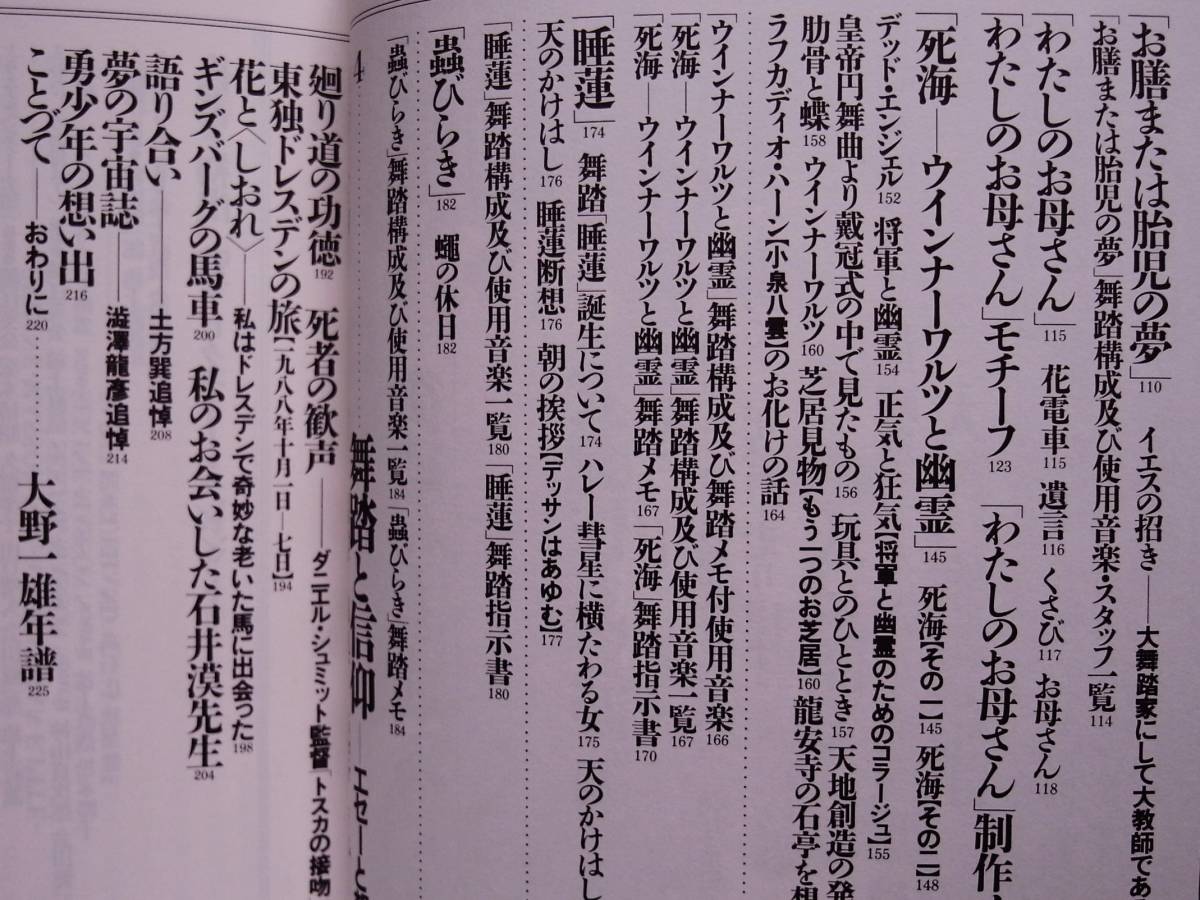 「お膳または胎児の夢」110 イエスの招き——大舞踏家にして大教師であ
「お膳または胎児の夢」舞踏構成及び使用音楽・スタッフ一覧114
「わたしのお母さん」115 花電車115 遺言116 くさび117 お母さん118
「わたしのお母さん」モチーフ123 「わたしのお母さん」制作
「死海——ウインナーワルツと幽霊」145 死海【その一】145 死海【その二】148
デッド・エンジェル152 将軍と幽霊154 正気と狂気【将軍と幽霊のためのコラージュ】155
皇帝円舞曲より戴冠式の中で見たもの156 玩具とのひととき157 天地創造の発
肋骨と蝶158 ウインナーワルツ160 芝居見物【もう一つのお芝居】160 龍安寺の石亭を想
ラフカディオ・ハーン【小泉八雲】のお化けの話164
「死海——ウインナーワルツと幽霊」舞踏構成及び舞踏メモ付使用音楽166
「死海——ウインナーワルツと幽霊」舞踏構成及び使用音楽一覧167
「死海——ウインナーワルツと幽霊」舞踏メモ167 「死海」舞踏指示書170
「睡蓮」174 舞踏「睡蓮」誕生について174 ハレー彗星に横たわる女175 天のかけはし
天のかけはし176 睡蓮断想176 朝の挨拶【デッサンはあゆむ】177
「睡蓮」舞踏構成及び使用音楽一覧180 「睡蓮」舞踏指示書180
「蟲びらき」182 蠅の休日182
「蟲びらき」舞踏構成及び使用音楽一覧184 「蟲びらき」舞踏メモ184
4 舞踏と信仰——エセーと
廻り道の功徳192 死者の歓声——ダニエル・シュミット監督「トスカの接吻
東独ドレスデンの旅【一九八八年十月一日—七日】194
花と〈しおれ〉——私はドレスデンで奇妙な老いた馬に出会った198
ギンズバーグの馬車200 私のお会いした石井漠先生204
語り合い——土方巽追悼208
夢の宇宙誌——澁澤龍彦追悼214
勇少年の想い出216
ことづて——おわりに220
大野一雄年譜225